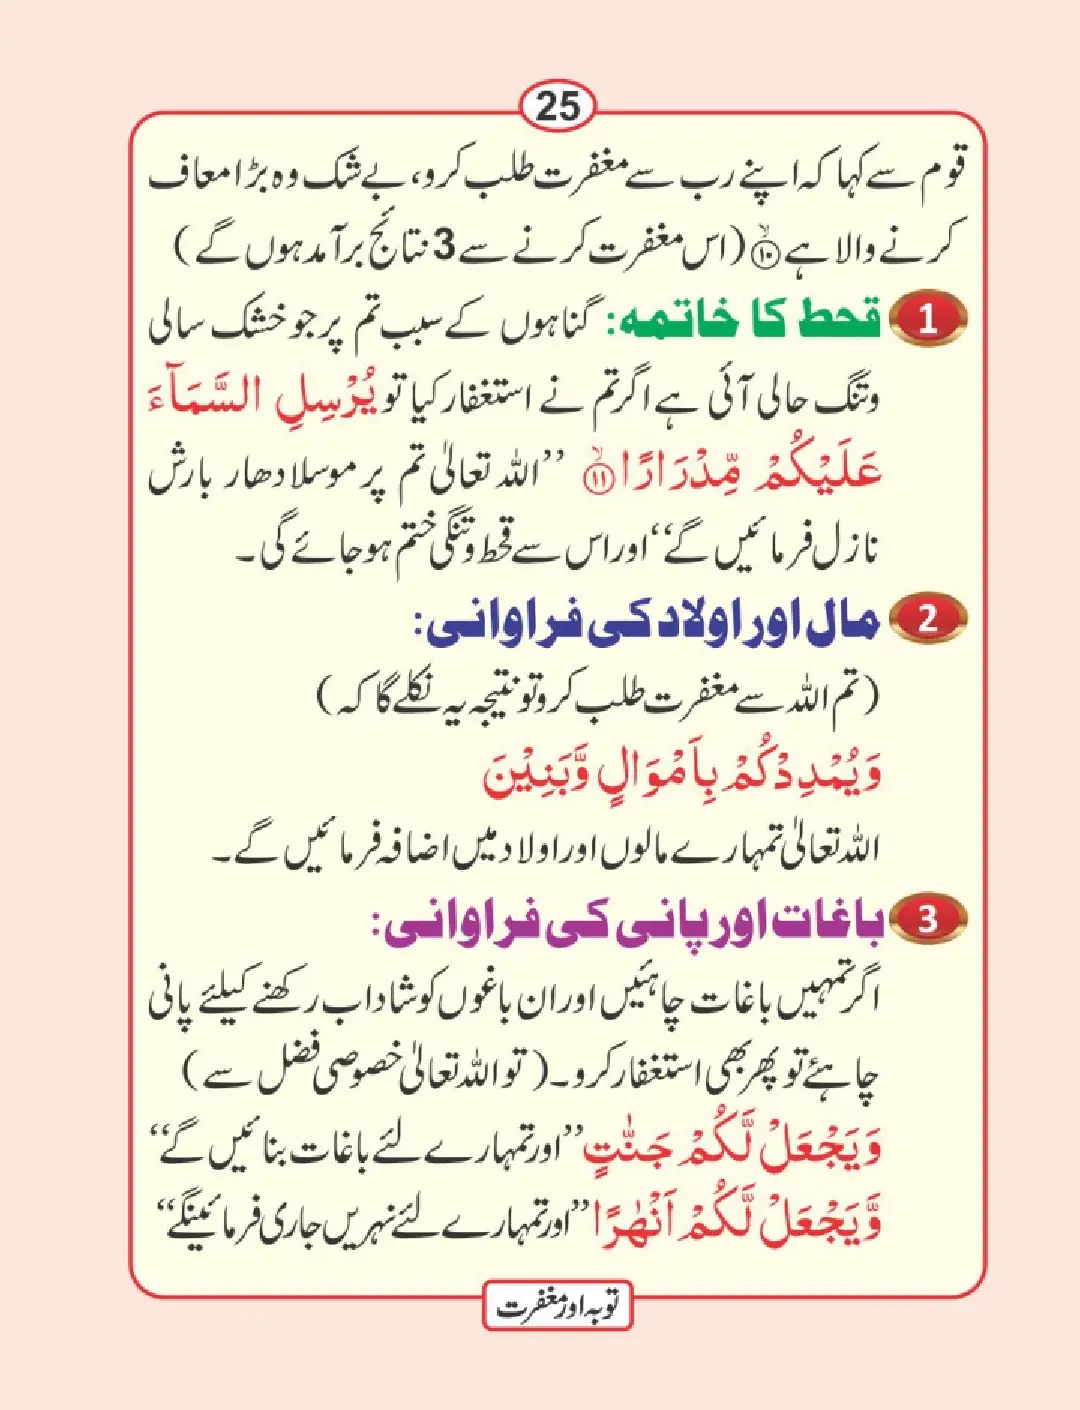 25
قوم سے کہا کہ اپنے رب سے مغفرت طلب کرو، بے شک وہ بڑا معاف
کرنے والا ہے ۝۱۰ (اس مغفرت کرنے سے 3 نتائج برآمد ہوں گے)
1 قحط کا خاتمہ: گناہوں کے سبب تم پر جو خشک سالی
وتنگ حالی آئی ہے اگر تم نے استغفار کیا تو يُرْسِلِ السَّمَآءَ
عَلَيْكُمْ مِّدْرَارًا ۝۱۱ ’’اللہ تعالیٰ تم پر موسلا دھار بارش
نازل فرمائیں گے‘‘ اور اس سے قحط و تنگی ختم ہو جائے گی۔
2 مال اور اولاد کی فراوانی:
(تم اللہ سے مغفرت طلب کرو تو نتیجہ یہ نکلے گا کہ)
وَيُمْدِدْكُمْ بِاَمْوَالٍ وَّبَنِيْنَ
اللہ تعالیٰ تمہارے مالوں اور اولاد میں اضافہ فرمائیں گے۔
3 باغات اور پانی کی فراوانی:
اگر تمہیں باغات چاہئیں اور ان باغوں کو شاداب رکھنے کیلئے پانی
چاہئے تو پھر بھی استغفار کرو۔ (تو اللہ تعالیٰ خصوصی فضل سے)
وَيَجْعَلْ لَّكُمْ جَنّٰتٍ ’’اور تمہارے لئے باغات بنائیں گے‘‘
وَّيَجْعَلْ لَّكُمْ اَنْهٰرًا ’’اور تمہارے لئے نہریں جاری فرمائینگے‘‘
توبہ اور مغفرت